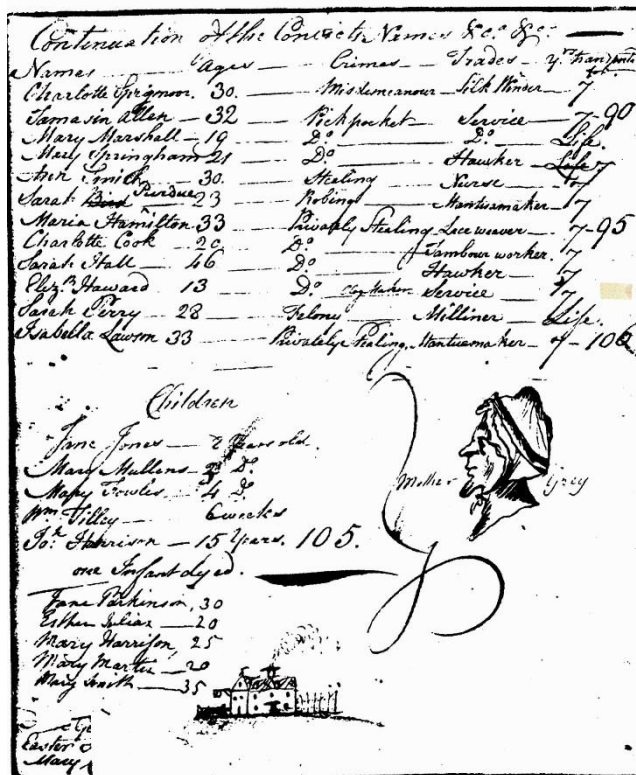 Continuation of the Convicts Names &c. &c.
Names Ages Crimes Trades yrs transported for
Charlotte Sprigmore 30. Misdemeanour Silk Winder 7
Tamasin Allen 32 Pickpocket Service 7 - 90
Mary Marshall 19 Do Do Life.
Mary Springham 21 Do Hawker Life 7
Ann Smith 30. Stealing Nurse 7
Sarah Bird Perdue 23 Robing Mantuamaker 7
Maria Hamilton 33 Privately Stealing Lace weaver 7 - 95
Charlotte Cook 20 Do Tambour worker. 7
Sarah Hall 46 Do Hawker 7
Elizh Haward 13 Do Clog Maker Service 7
Sarah Perry 28 Felony Milliner Life.
Isabella Lawson 33 Privately Stealing Mantuamaker 7 - 100
Children
Jane Jones 2 Years old.
Mary Mullens Do
Mary Fowles 4 Do
Wm Tilley 6 weeks
Jos. Harrison 15 Years. 105.
one Infant dyed.
Mother Grey
Jane Parkinson, 30
Esther Julian 20
Mary Harrison, 25
Mary Martin 20
Mary Smith 35
Easter
Mary